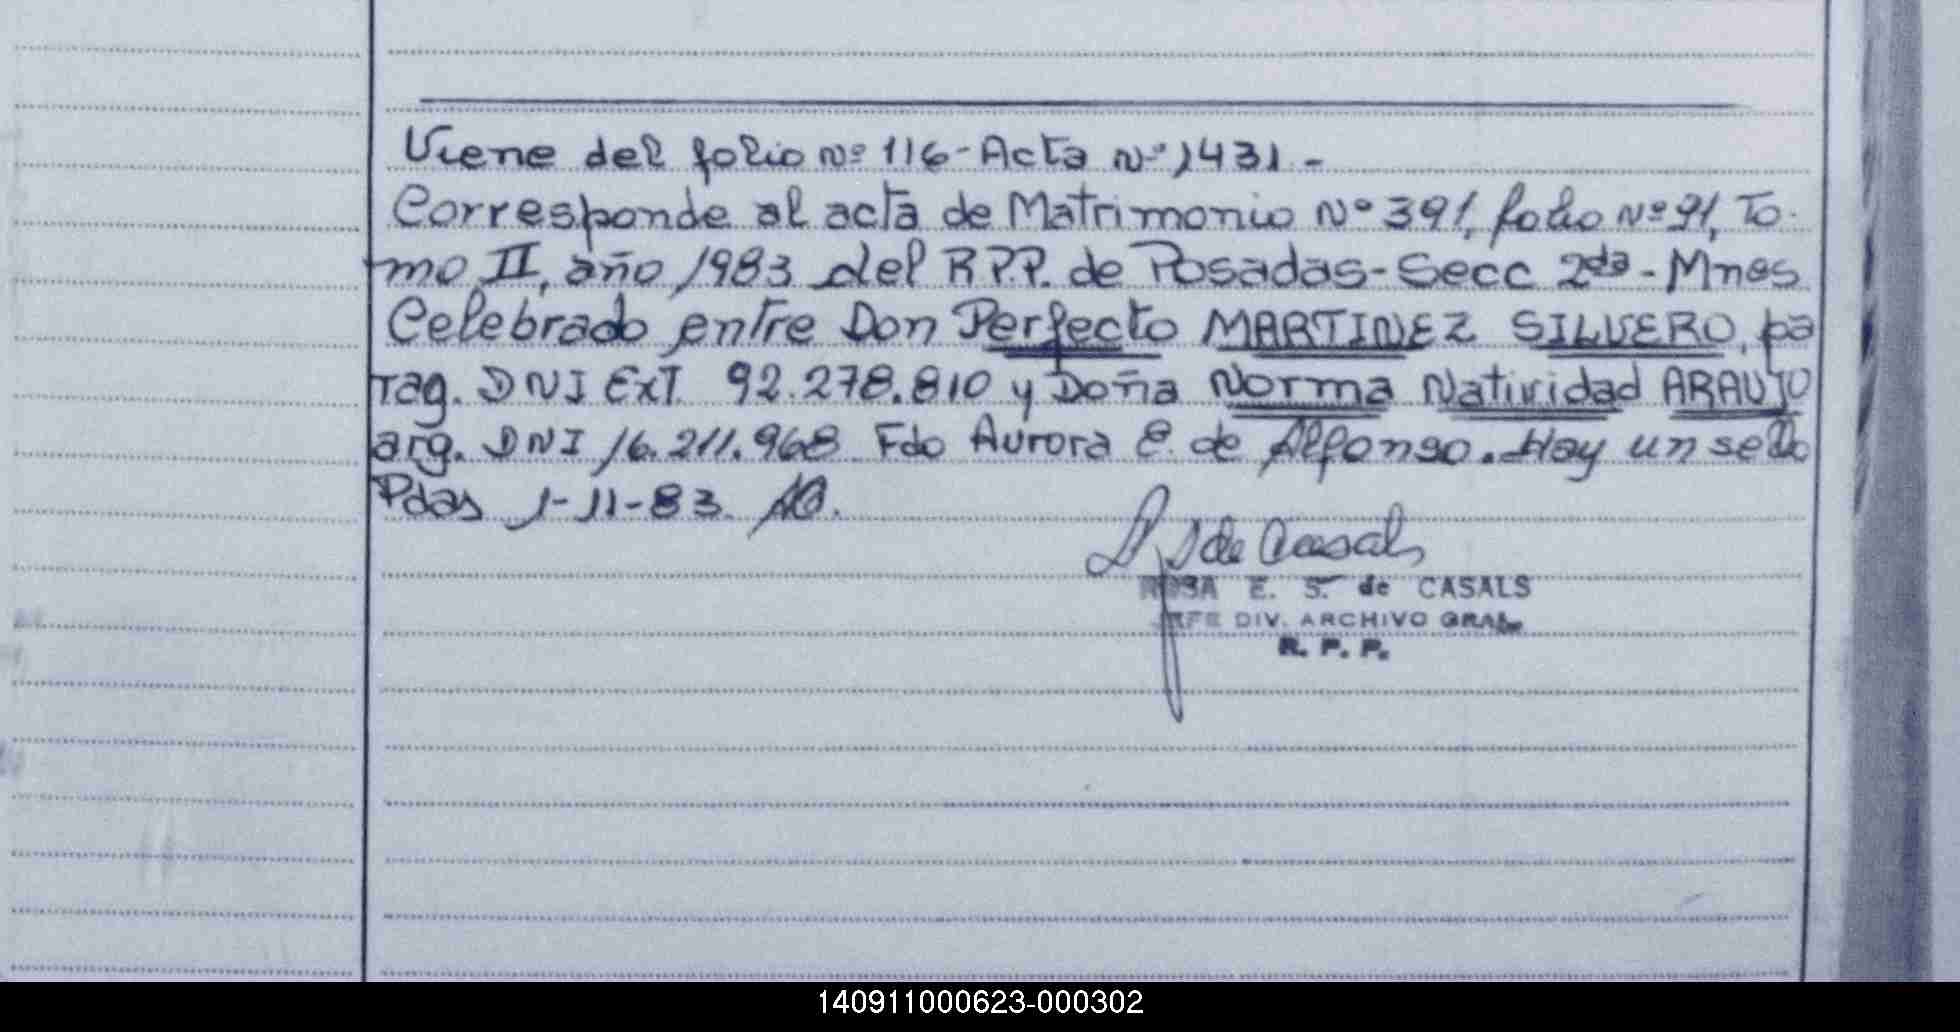 Viene del folio Nº 116 - Acta Nº 1431. -
Corresponde al acta de Matrimonio Nº 391, folio Nº 91, To-
mo II, año 1983 del R.P.P. de Posadas - Secc 2da - Mnes
Celebrado entre Don Perfecto MARTINEZ SILVERO, pa
rag. DNI EXT. 92.278.810 y Doña Norma Natividad ARAUJO
arg. DNI 16.211.968 Fdo Aurora E. de Alfonso. Hay un sello
Pdas 1-11-83.
de Casals
ROSA E. S. de CASALS
JEFE DIV. ARCHIVO GRAL.
R. P. P.
140911000623-000302